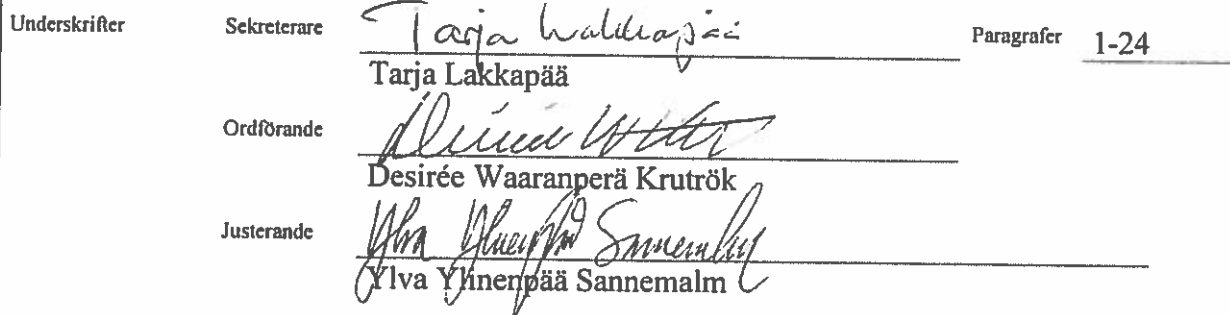 Underskrifter Sekreterare Tarja Lakkapää Paragrafer 1-24
Tarja Lakkapää
Ordförande
Desirée Waaranperä Krutrök
Justerande Ylva Ylinenpää Sannemalm
Ylva Ylinenpää Sannemalm